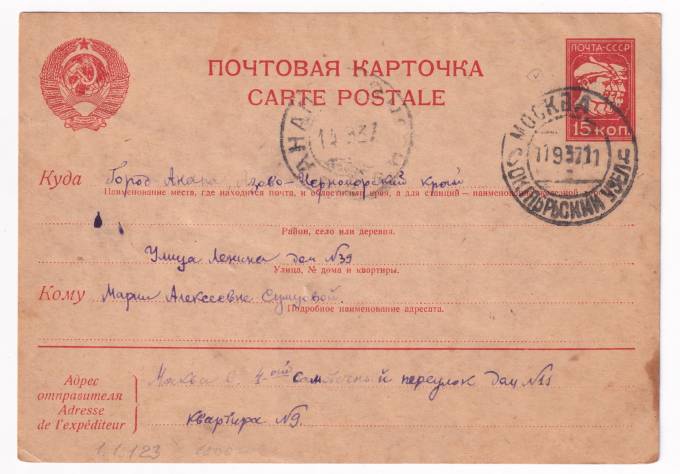 ПОЧТОВАЯ КАРТОЧКА
CARTE POSTALE
ПОЧТА-СССР
15 КОП.
МОСКВА
11 9 37 11
АНАПА
14 9 37
Куда
Город Анапа, Азово-Черноморский край
Наименование места, где находится почта, и области или края, а для станций — наименование железной дороги.
Район, село или деревня.
Улица Ленина дом №39
Улица, № дома и квартиры.
Кому
Марии Алексеевне
Подробное наименование адресата.
Адрес
отправителя
Adresse
de l'expéditeur
Москва 4-ый переулок дом №
квартира №9.
1.1.123